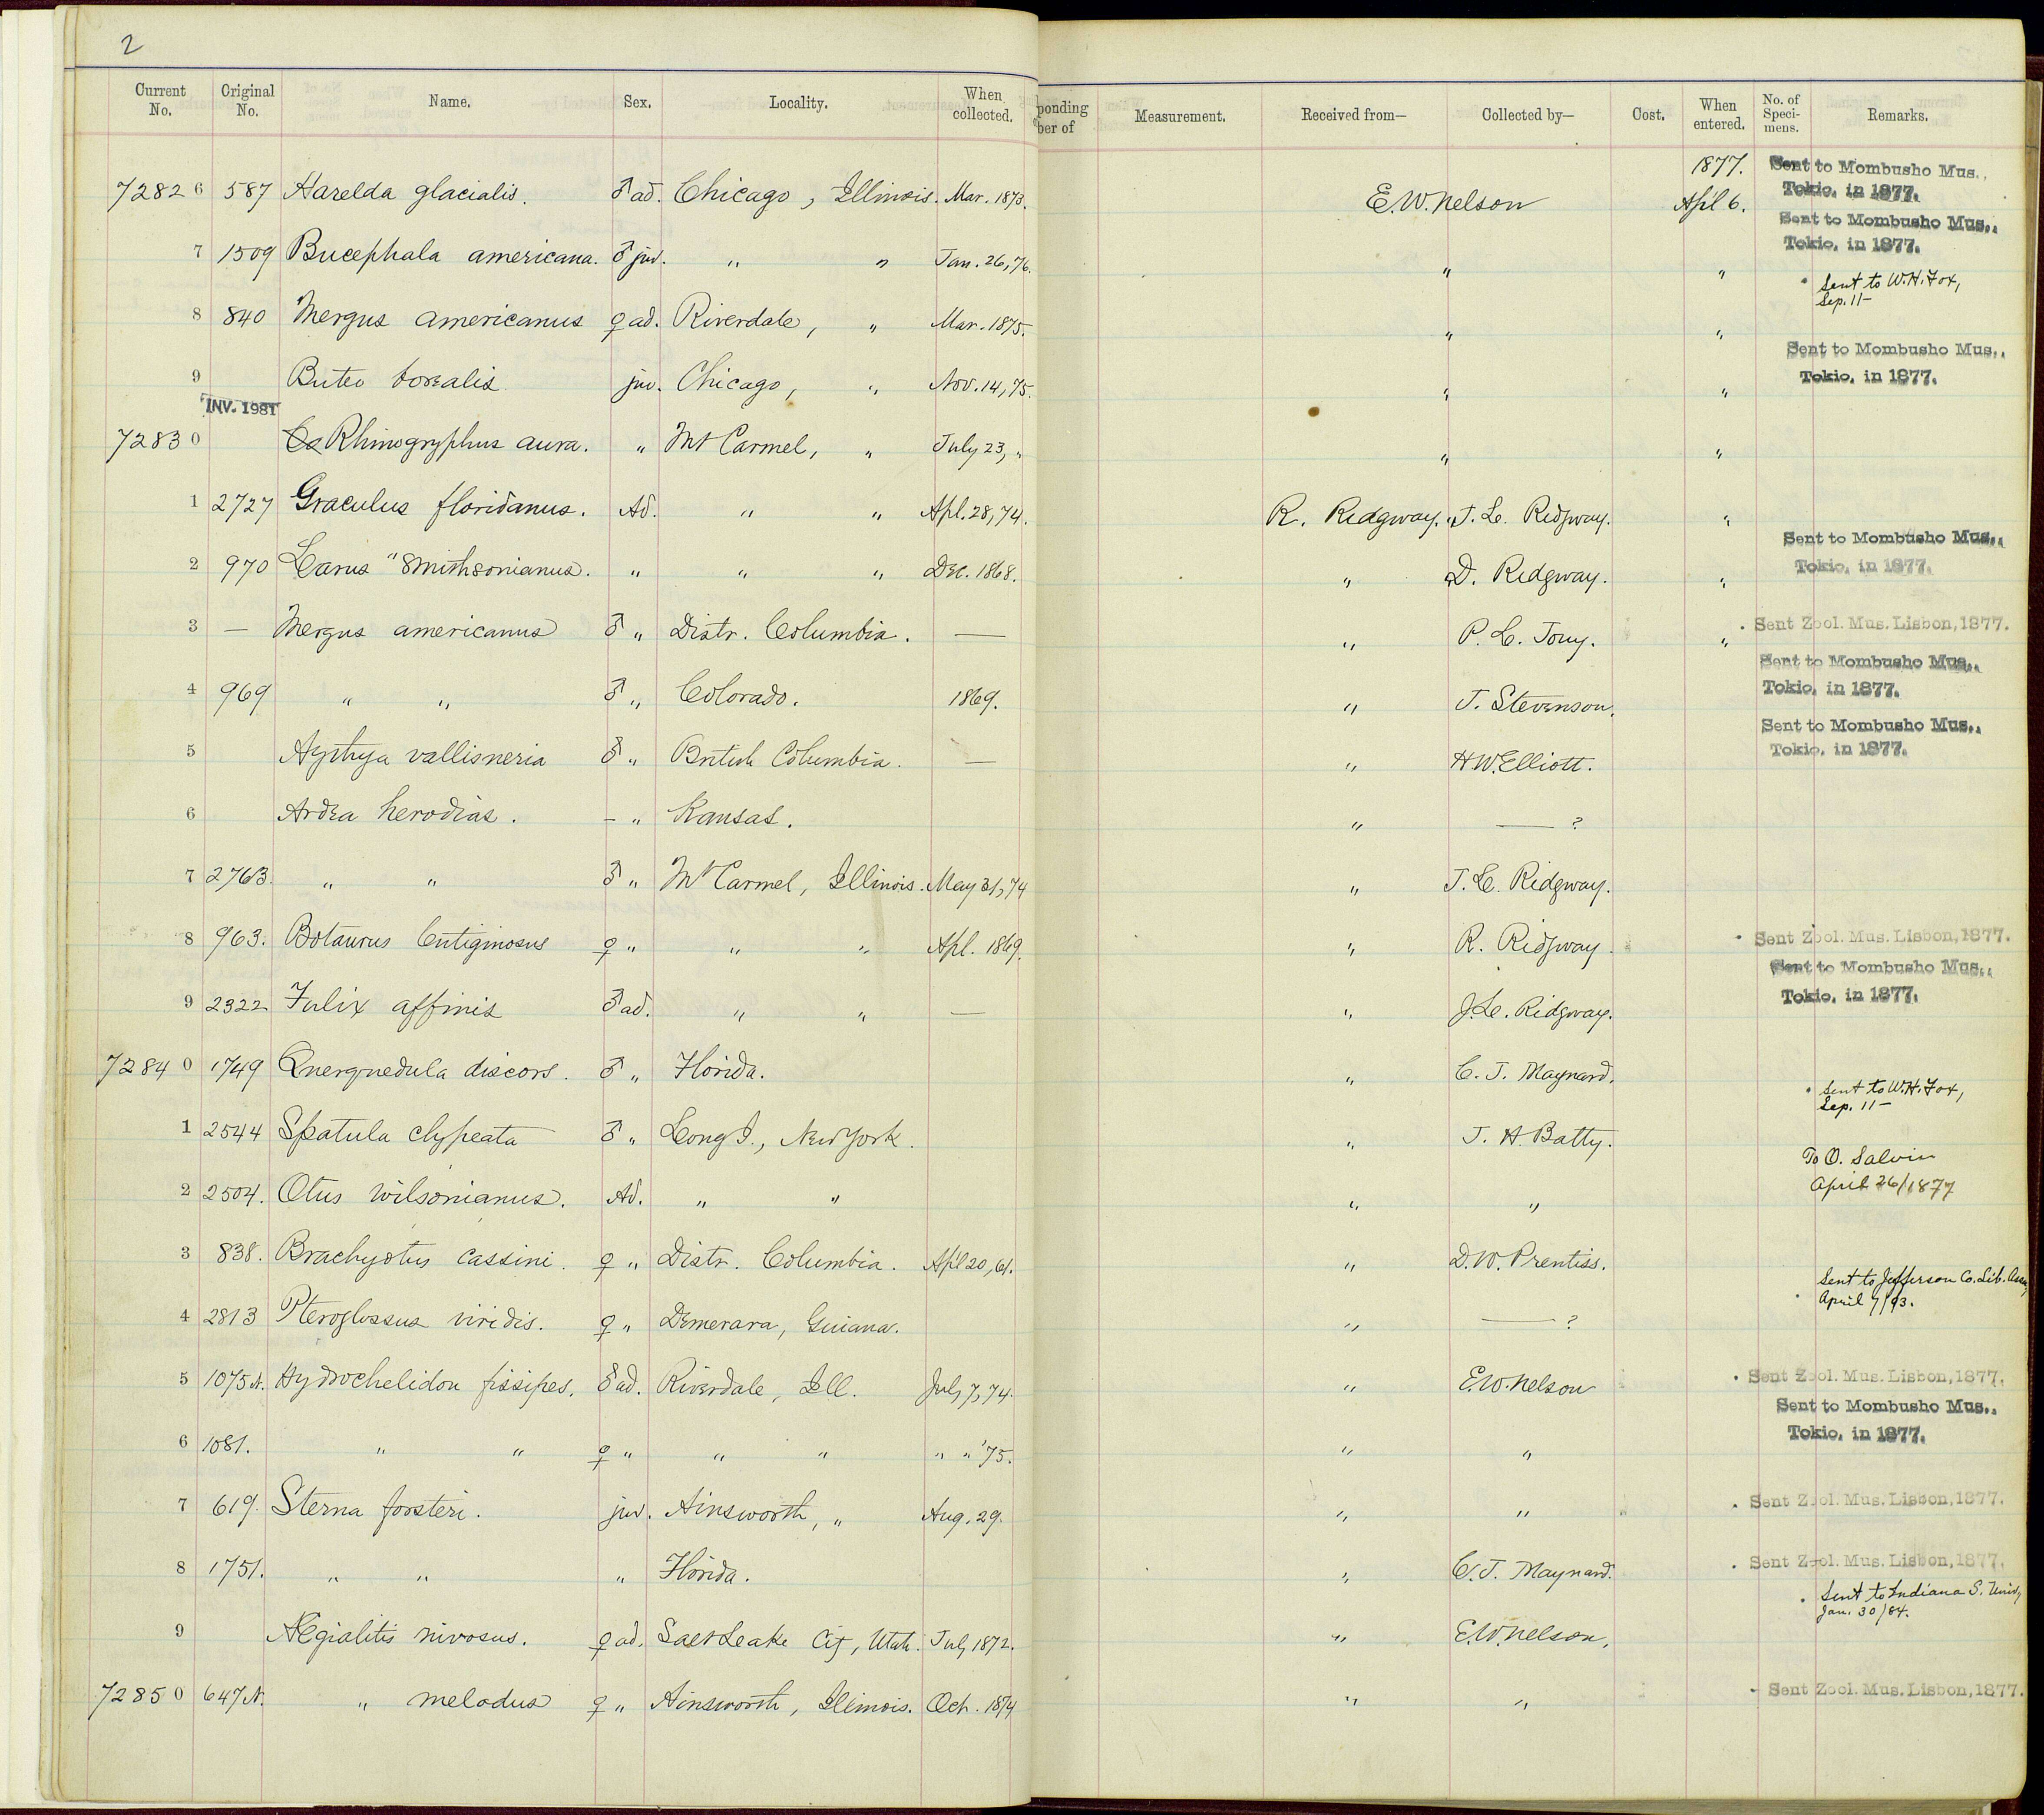 2
Current No. Original No. Name. Sex. Locality. When collected. ponding ber of Measurement. Received from— Collected by— Cost. When entered. No. of Speci-mens. Remarks.
1877. Sent to Mombusho Mus., Tokio, in 1877.
72826 587 Harelda glacialis. ♂ ad. Chicago, Illinois. Mar. 1873. E.W. Nelson Apl 6.
Sent to Mombusho Mus., Tokio, in 1877.
7 1509 Bucephala americana. ♂ juv. " " Jan. 26, 76. " "
Sent to W.H. Fox, Sep. 11—
8 840 Mergus americanus ♀ ad. Riverdale, " Mar. 1875. " "
Sent to Mombusho Mus., Tokio, in 1877.
9 Buteo borealis juv. Chicago, " Nov. 14, 75. " "
INV. 1981
72830 Rhinogryphus aura. " Mt Carmel, " July 23, " " "
1 2727 Graculus floridanus. Ad. " " Apl. 28, 74. R. Ridgway. J. L. Ridgway. "
Sent to Mombusho Mus., Tokio, in 1877.
2 970 Larus "Smithsonianus. " " " Dec. 1868. " D. Ridgway. "
3 — Mergus americanus ♂ " Distr. Columbia. — " P. L. Jouy. " Sent Zool. Mus. Lisbon, 1877.
Sent to Mombusho Mus., Tokio, in 1877.
4 969 " " ♂ " Colorado. 1869. " J. Stevenson.
Sent to Mombusho Mus., Tokio, in 1877.
5 Aythya vallisneria ♂ " British Columbia. — " H.W. Elliott.
6 Ardea herodias. – " Kansas. " — ?
7 2763. " " ♂ " Mt Carmel, Illinois. May 31, 74 " J. L. Ridgway.
8 963. Botaurus lentiginosus ♀ " " " Apl. 1869. " R. Ridgway. Sent Zool. Mus. Lisbon, 1877.
Sent to Mombusho Mus., Tokio, in 1877.
9 2322 Fulix affinis ♂ ad. " " — " J. L. Ridgway.
72840 1749 Querquedula discors. ♂ " Florida. " C. J. Maynard.
Sent to W.H. Fox, Sep. 11—
1 2544 Spatula clypeata ♂ " Long I., New York. " J. H. Batty.
To O. Salvin April 26/1877
2 2504. Otus wilsonianus. Ad. " " " "
3 838. Brachyotus cassini. ♀ " Distr. Columbia. Apl 20, 61. " D.W. Prentiss.
Sent to Jefferson Co. Lib. Assn, April 7/93.
4 2813 Pteroglossus viridis. ♀ " Demerara, Guiana. " — ?
5 1075 N. Hydrochelidon fissipes. ♂ ad. Riverdale, Ill. July 7, 74. " E.W. Nelson Sent Zool. Mus. Lisbon, 1877.
Sent to Mombusho Mus., Tokio, in 1877.
6 1081. " " ♀ " " " " " '75. " "
7 619. Sterna forsteri. juv. Ainsworth, " Aug. 29. " " Sent Zool. Mus. Lisbon, 1877.
8 1751. " " " Florida. " C. J. Maynard. Sent Zool. Mus. Lisbon, 1877.
Sent to Indiana S. Univ, Jan. 30/84.
9 Ægialitis nivosus. ♀ ad. Salt Leake City, Utah. July 1872. " E.W. Nelson.
72850 647 N. " melodus ♀ " Ainsworth, Illinois. Oct. 1874 " " Sent Zool. Mus. Lisbon, 1877.